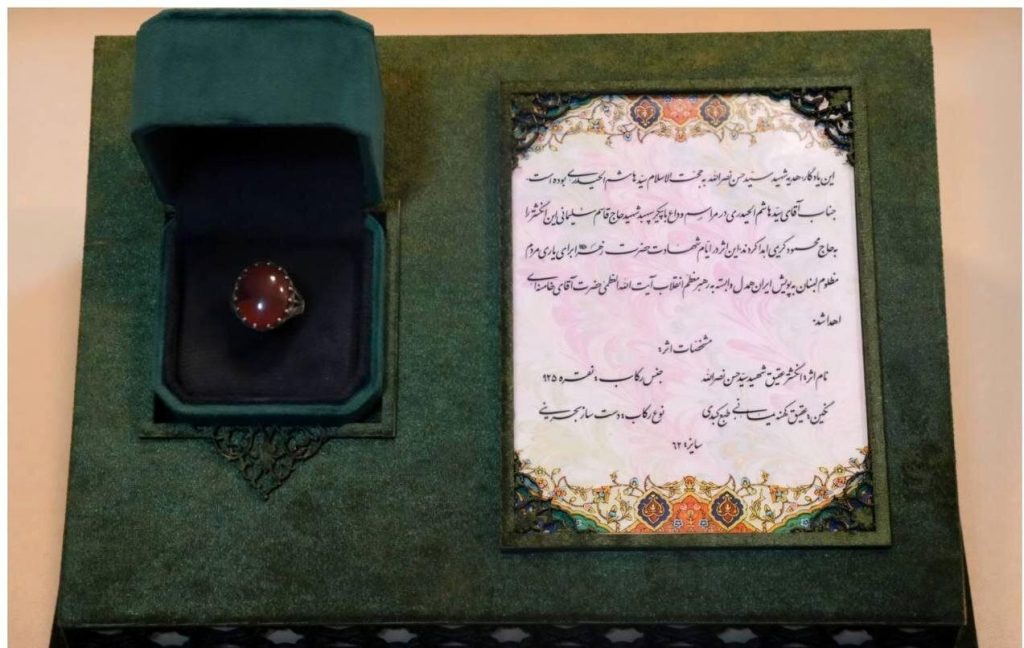 این یادگار، هدیه شهید سید حسن نصرالله به حجت الاسلام سید هاشم الحیدری بوده است.
جناب آقای سید هاشم الحیدری در مراسم وداع با پیکر سپهبد شهید حاج قاسم سلیمانی این انگشتر را
به حاج محمود کریمی اهدا کردند، این اثر در ایام شهادت حضرت زهرا برای یاری مردم
مظلوم لبنان به پویش ایران همدل وابسته به رهبر معظم انقلاب آیت الله العظمی حضرت آقای خامنه ای
اهدا شد.
مشخصات اثر:
نام اثر: انگشتر عقیق شهید سید حسن نصرالله جنس رکاب: نقره ۹۲۵
نگین: عقیق کهنه یمانی طبع کبدی نوع رکاب: دست ساز بحرینی
سایز: ۶۲